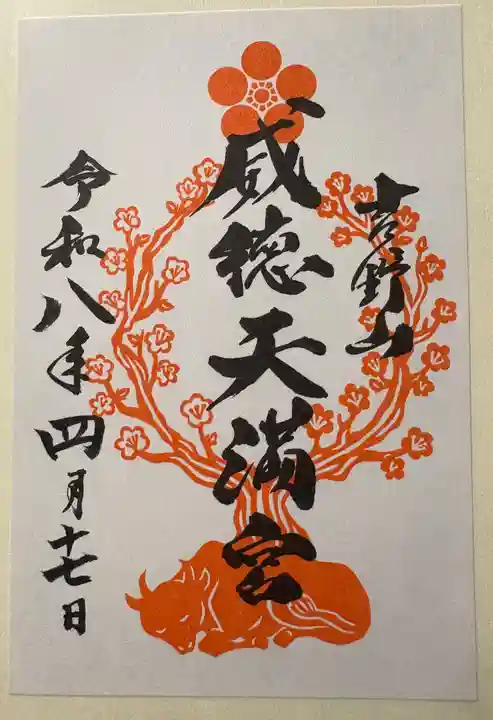 吉野山
威徳天満宮
令和八年四月十七日